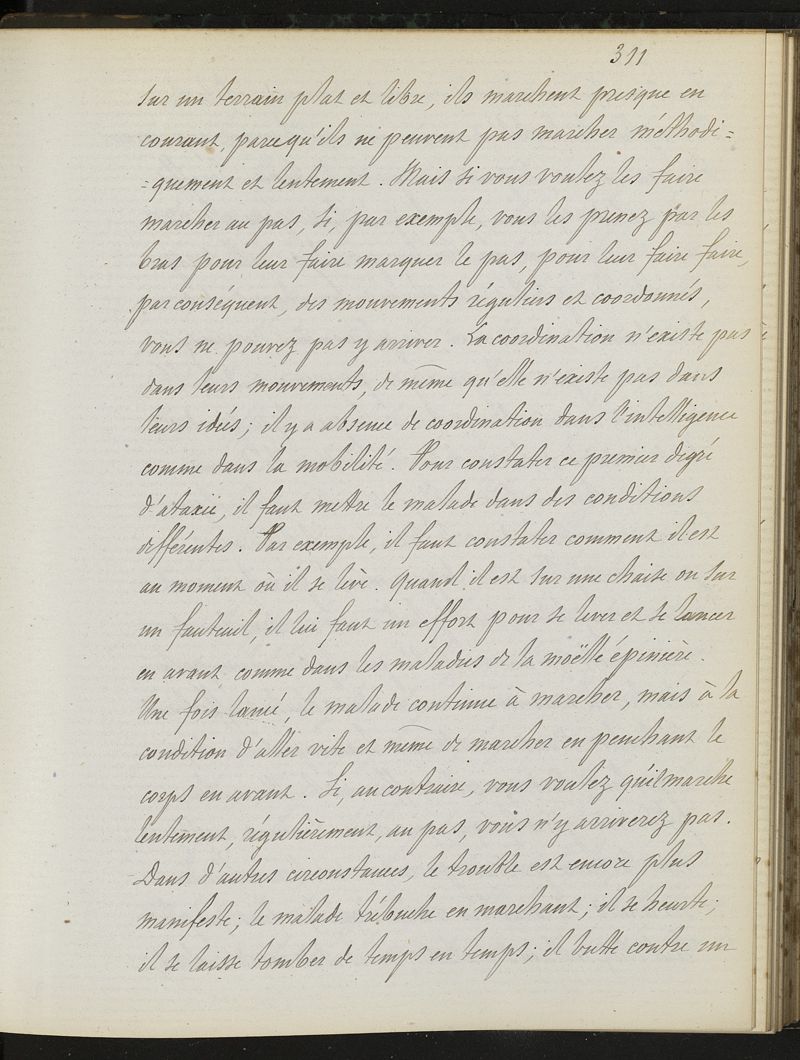 311
sur un terrain plat et libre, ils marchent presque en
courant, parcequ'ils ne peuvent pas marcher méthodi=
=quement et lentement. Mais si vous voulez les faire
marcher au pas, si, par exemple, vous les prenez par les
bras pour leur faire marquer le pas, pour leur faire faire,
par conséquent, des mouvements réguliers et coordonnés,
vous ne pouvez pas y arriver. La coordination n'existe pas
dans leurs mouvements, de même qu'elle n'existe pas dans
leurs idées; il y a absence de coordination dans l'intelligence
comme dans la mobilité. Pour constater ce premier degré
d'ataxie, il faut mettre le malade dans des conditions
différentes. Par exemple, il faut constater comment il est
au moment où il se lève. Quand il est sur une chaise ou sur
un fauteuil, il lui faut un effort pour se lever et se lancer
en avant comme dans les maladies de la moëlle épinière.
Une fois lancé, le malade continue à marcher, mais à la
condition d'aller vite et même de marcher en penchant le
corps en avant. Si, au contraire, vous voulez qu'il marche
lentement, régulièrement, au pas, vous n'y arriverez pas.
Dans d'autres circonstances, le trouble est encore plus
manifeste; le malade trébuche en marchant; il se heurte;
il se laisse tomber de temps en temps; il butte contre un